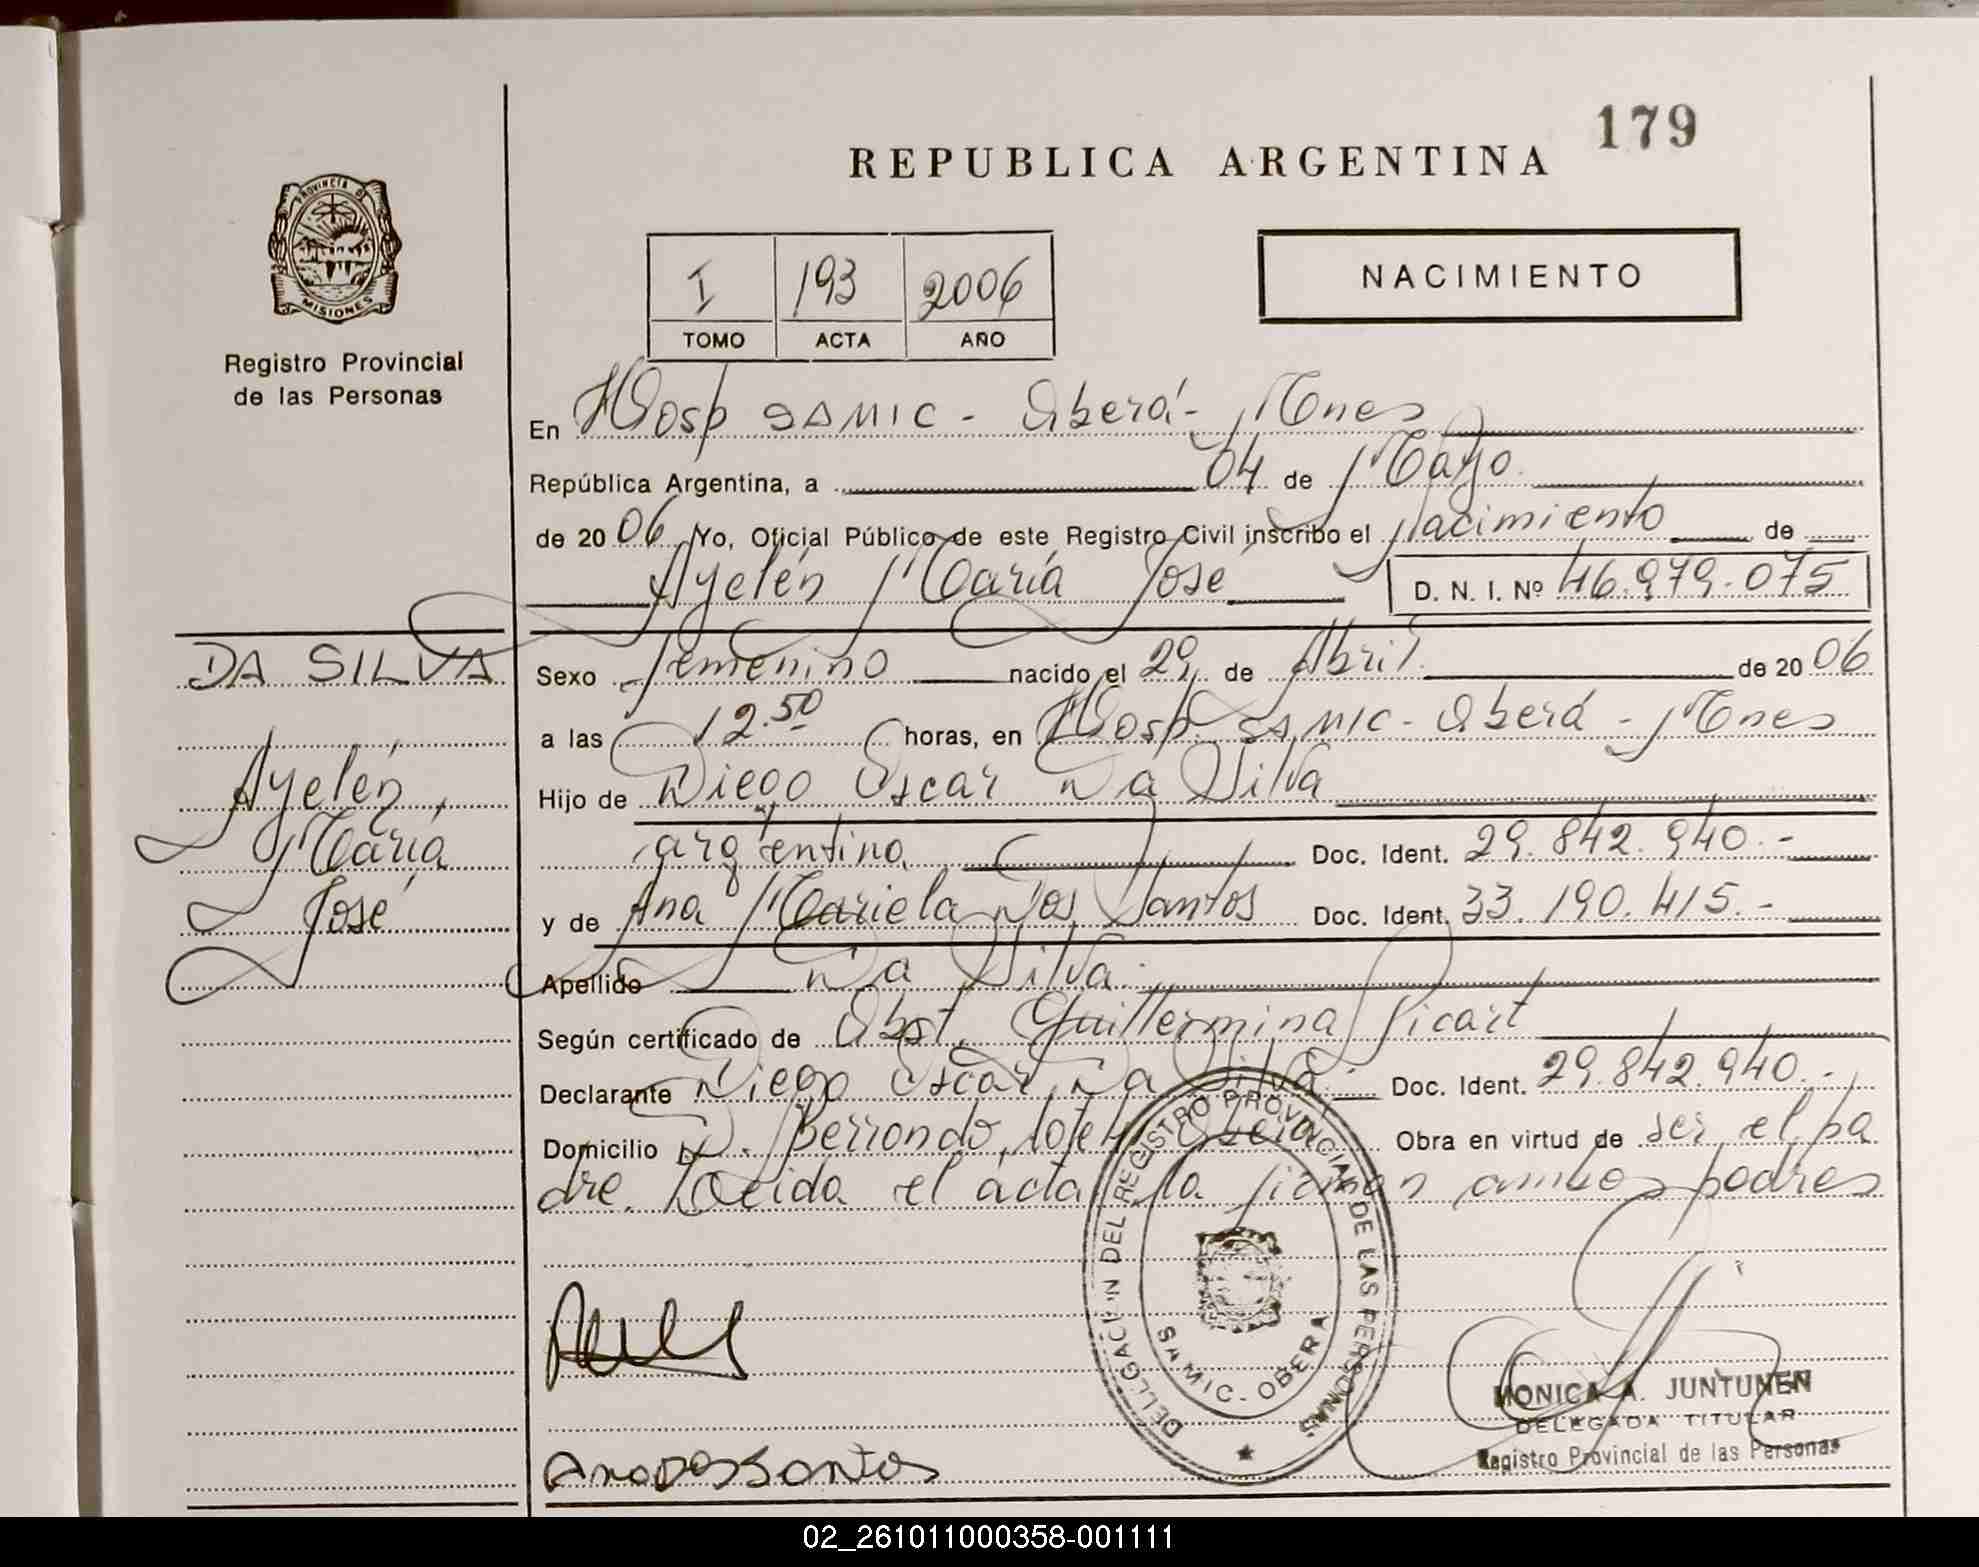 179
REPUBLICA ARGENTINA
PROVINCIA DE
MISIONES
Registro Provincial
de las Personas
I 193 2006
TOMO ACTA AÑO
NACIMIENTO
En Hosp SAMIC - Oberá - Mnes
República Argentina, a 04 de Mayo
de 2006 Yo, Oficial Público de este Registro Civil inscribo el nacimiento de
Ayelén María José D. N. I. Nº 46.979.075
DA SILVA
Ayelén
María
José
Sexo femenino nacido el 29 de Abril de 2006
a las 12.50 horas, en Hosp. SAMIC - Oberá - Mnes
Hijo de Diego Oscar Da Silva
argentino Doc. Ident. 29.842.940.-
y de Ana Mariela Dos Santos Doc. Ident. 33.190.415.-
Apellido Da Silva.
Según certificado de Obst. Guillermina Picart
Declarante Diego Oscar Da Silva.- Doc. Ident. 29.842.940.-
Domicilio Berrondo, lote Oberá Obra en virtud de ser el pa
dre. Leida el acta la firman ambos padres
DELEGACION DEL REGISTRO PROVINCIAL DE LAS PERSONAS
SAMIC - OBERA
Ana Dos Santos
MONICA A. JUNTUNEN
DELEGADA TITULAR
Registro Provincial de las Personas
02_261011000358-001111